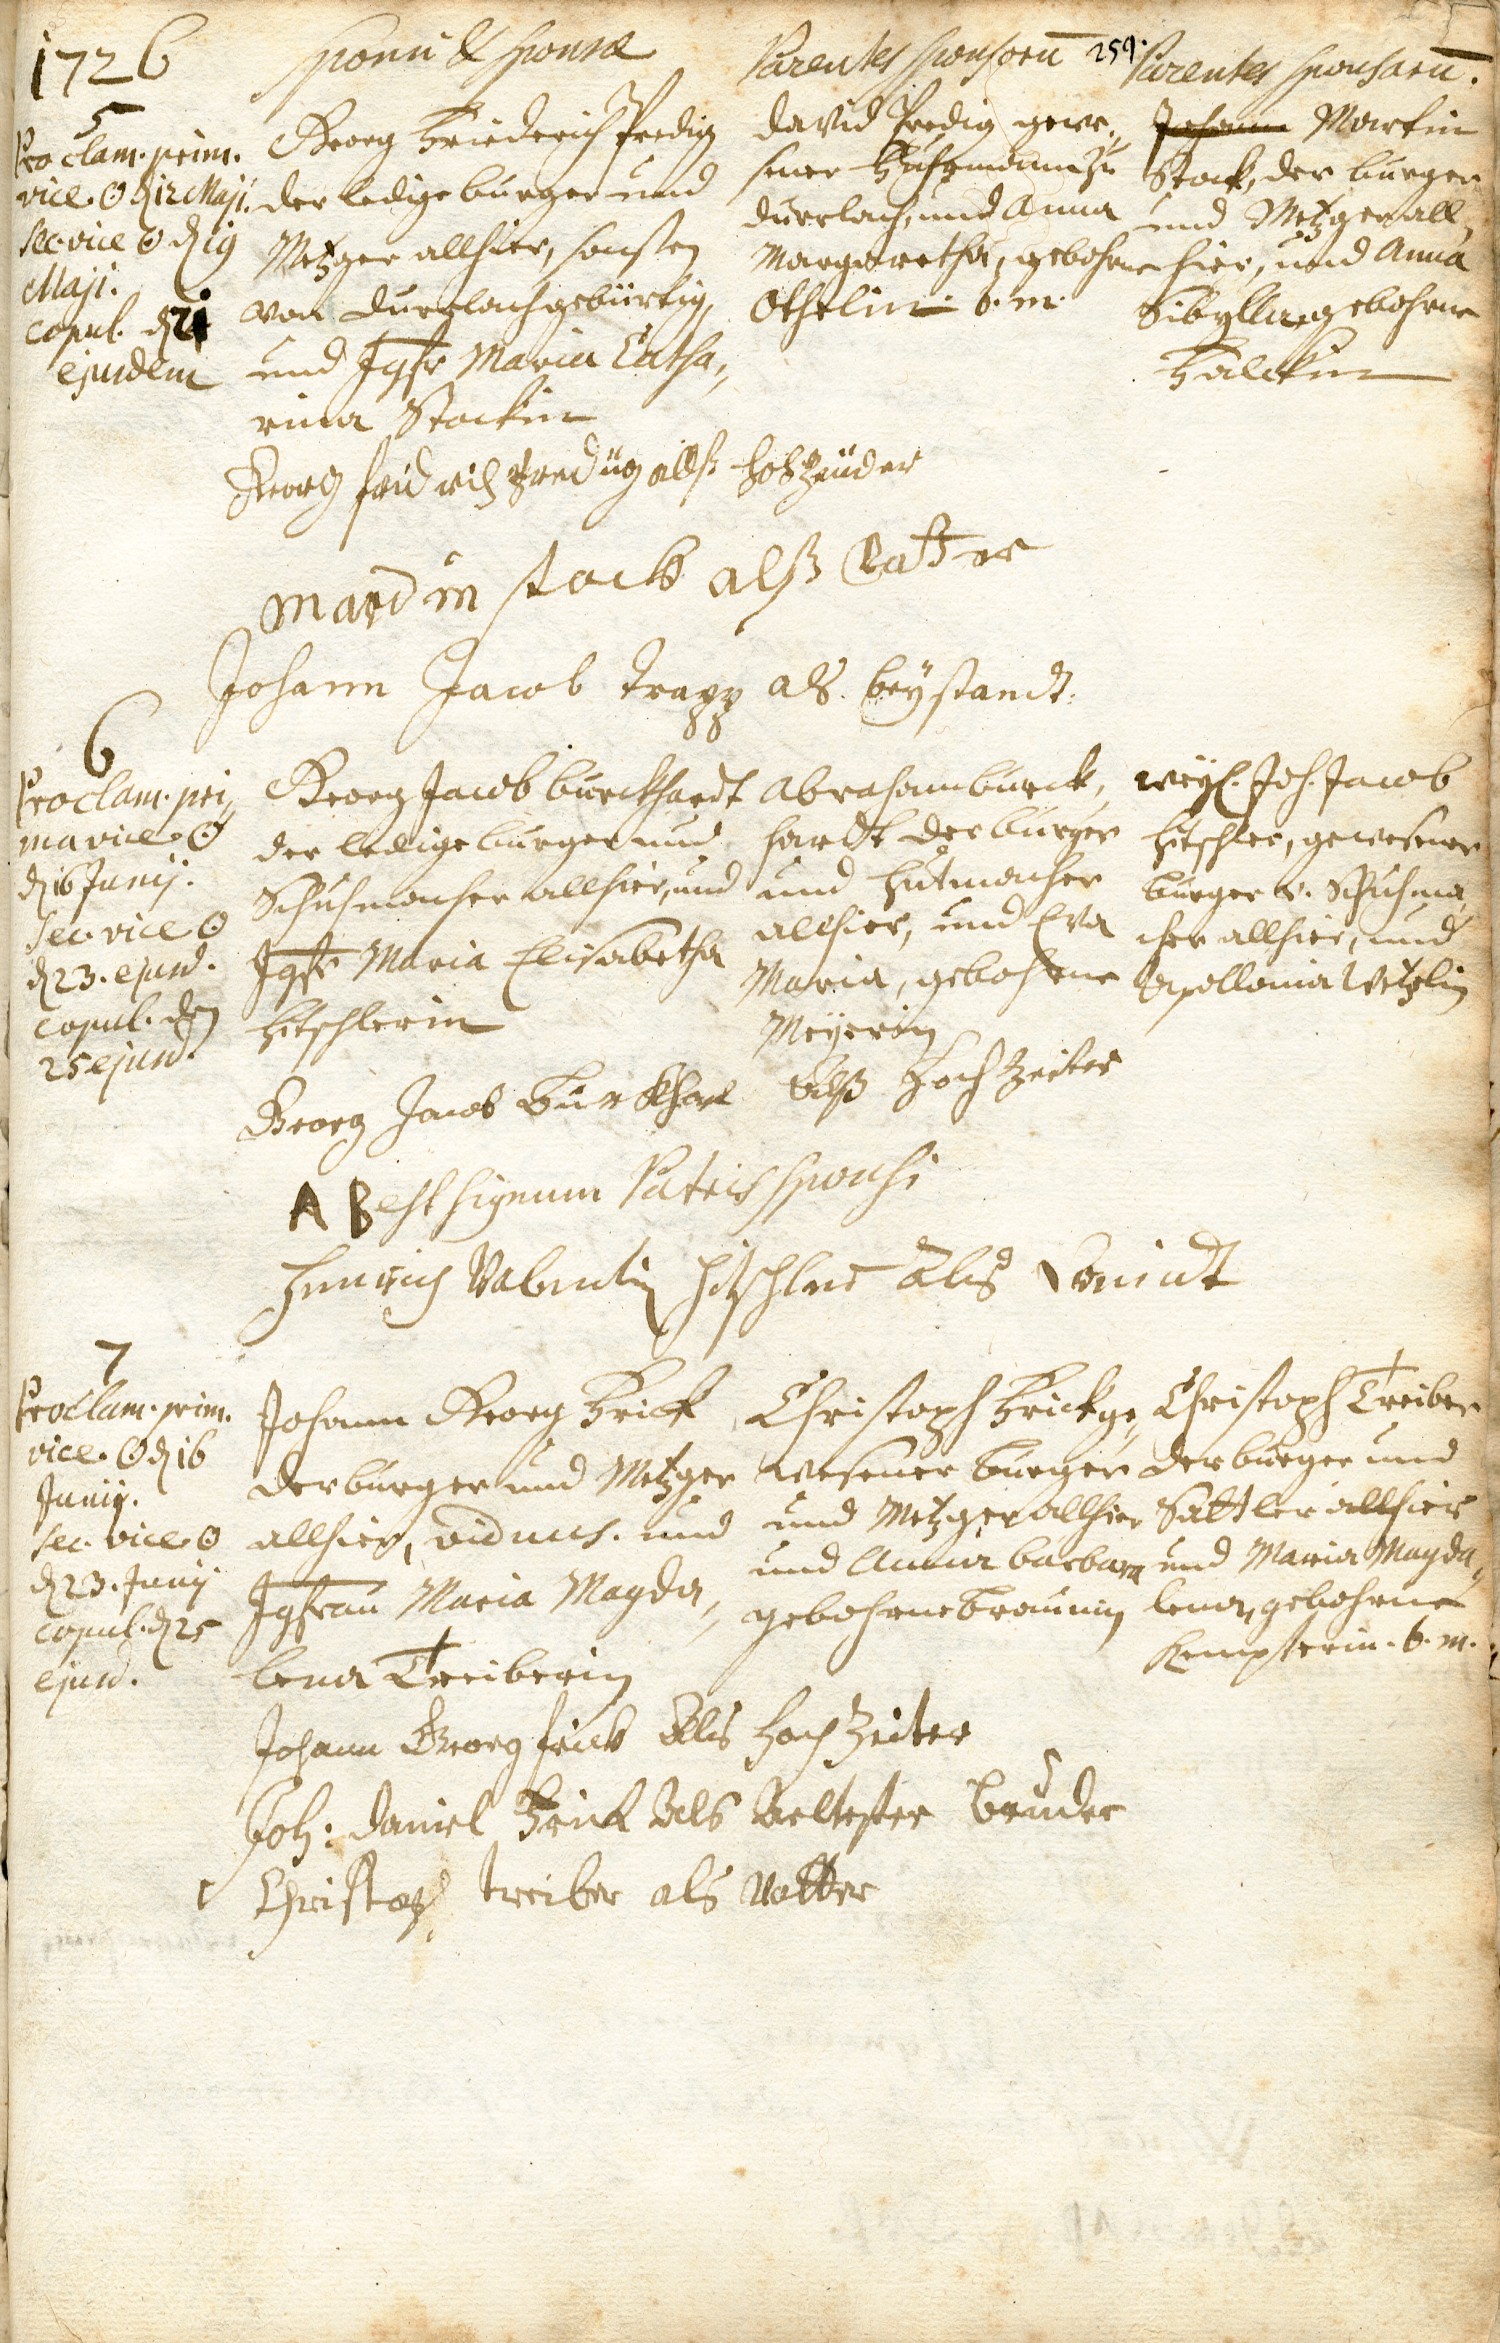 1726
Sponsi & Sponsæ
Parentes Sponsorū
259.
Parentes Sponsarū.
5
Proclam. prim.
vice. ☉ d. 12 Maji.
sec. vice ☉ d. 19
Maji.
copul. d. 21
ejusdem
Georg Friederich Predig
der ledige burger und
Metzger allhier, sonsten
von Durlach gebürtig,
und Jgfr Maria Catha,,
rina Stockin
David Predig gewe,,
sener zu
Durlach, und Anna
Margaretha, gebohrne
Othelin. b. m.
Johann Martin
Stock, der burger
und Metzger all,,
hier, und Anna
Sibylla, gebohrne
Falckin
Georg fridrich Predüg allß hohzeuder
Mardin stock alß Vatter
Johann Jacob Trapp als beystandt.
6
Proclam. pri,,
ma vice. ☉
d. 16 Junij.
sec. vice ☉
d. 23. ejusd.
copul. den
25 ejusd.
Georg Jacob burckhardt
der ledige burger und
Schuhmacher allhier, und
Jgfr Maria Elisabetha
Hitschlerin
Abraham burck,,
hardt der burger
und Hutmacher
allhier, und Eva
Maria, gebohrne
Meyerin
weyl. Joh. Jacob
Hitschler, gewesener
burger v. Schuhma,,
cher allhier, und
Apollonia Wetzlin
Georg Jacob Burckhart Alß Hochzeiter
A B est signum Patris Sponsi
Henrich Valentin Hitschler Als
7
Proclam. prim.
vice. ☉ d. 16
Junij.
sec. vice ☉
d. 23. Junij
copul. d. 25
ejusd.
Johann Georg Frick
der burger und Metzger
allhier, viduus. und
Jgfrau Maria Magda,,
lena Treiberin
Christoph Frick ge,,
wesener burger
und Metzger allhier
und Anna barbara
gebohrne Braunin
Christoph Treiber
der burger und
Sattler allhier
und Maria Magda,,
lena, gebohrne
Kempterin. b. m.
Johann Georg frick Als Hochzeiter
Joh: Daniel Frick Als Aeltester Bruder
Christoph Treiber als Vatter